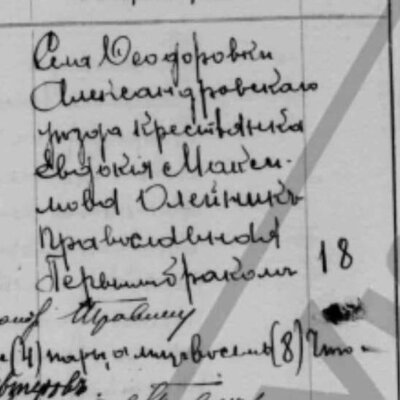 Села Ѳеодоровки
Александровскаго
уѣзда крестьянка
Евдокія Макси-
мова Олейникъ
православная
Первымъ бракомъ 18
(4) восемь (8) Что-